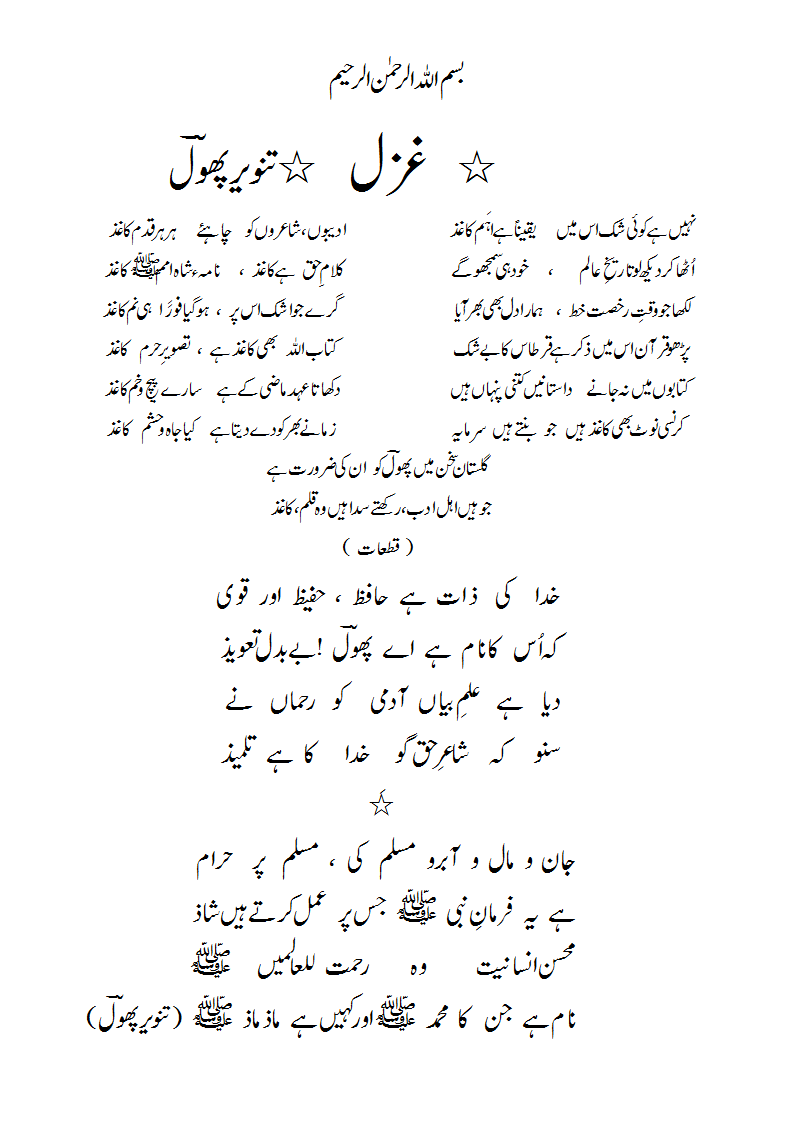 بسم اللہ الرحمٰن الرحیم
☆ غزل ☆ تنویر پھولؔ
نہیں ہے کوئی شک اس میں یقیناً ہے اہَم کاغذ ادیبوں، شاعروں کو چاہئے ہر ہر قدم کاغذ
اُٹھا کر دیکھ لو تاریخِ عالم ، خود ہی سمجھو گے کلامِ حق ہے کاغذ ، نامہء شاہ امم ﷺ کاغذ
لکھا جو وقتِ رخصت خط ، ہمارا دل بھی بھر آیا گرے جو اشک اس پر ، ہو گیا فورًا ہی نم کاغذ
پڑھو قرآن اس میں ذکر ہے قرطاس کا بے شک کتاب اللہ بھی کاغذ ہے ، تصویرِ حرم کاغذ
کتابوں میں نہ جانے داستانیں کتنی پنہاں ہیں دکھاتا عہد ماضی کے ہے سارے پیچ و خم کاغذ
کرنسی نوٹ بھی کاغذ ہیں جو بنتے ہیں سرمایہ زمانے بھر کو دے دیتا ہے کیا جاہ و حشم کاغذ
گلستان سخن میں پھولؔ کو ان کی ضرورت ہے
جو ہیں اہل ادب، رکھتے سدا ہیں وہ قلم، کاغذ
( قطعات )
خدا کی ذات ہے حافظ ، حفیظ اور قوی
کہ اُس کا نام ہے اے پھولؔ ! بے بدل تعویذ
دیا ہے علمِ بیاں آدمی کو رحماں نے
سنو کہ شاعرِ حق گو خدا کا ہے تلمیذ
☆
جان و مال و آبرو مسلم کی ، مسلم پر حرام
ہے یہ فرمانِ نبی ﷺ جس پر عمل کرتے ہیں شاذ
محسن انسانیت وہ رحمت للعالمیں ﷺ
نام ہے جن کا محمد ﷺ اور کہیں ہے ماذ ماذ ﷺ (تنویر پھولؔ)